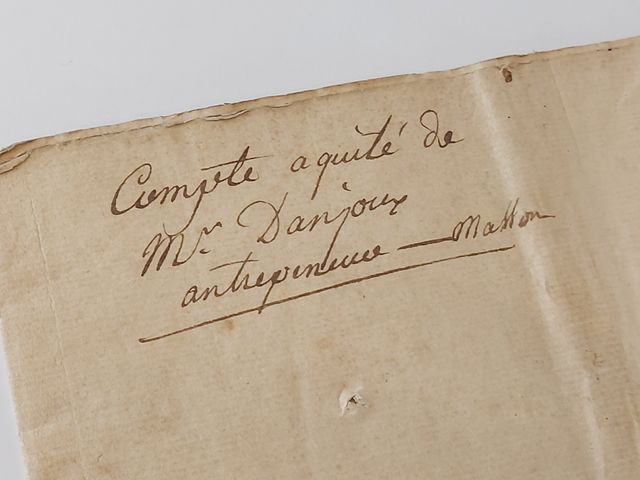 Compte aquité de
Mr Danjoux
antrepeneur — Masson